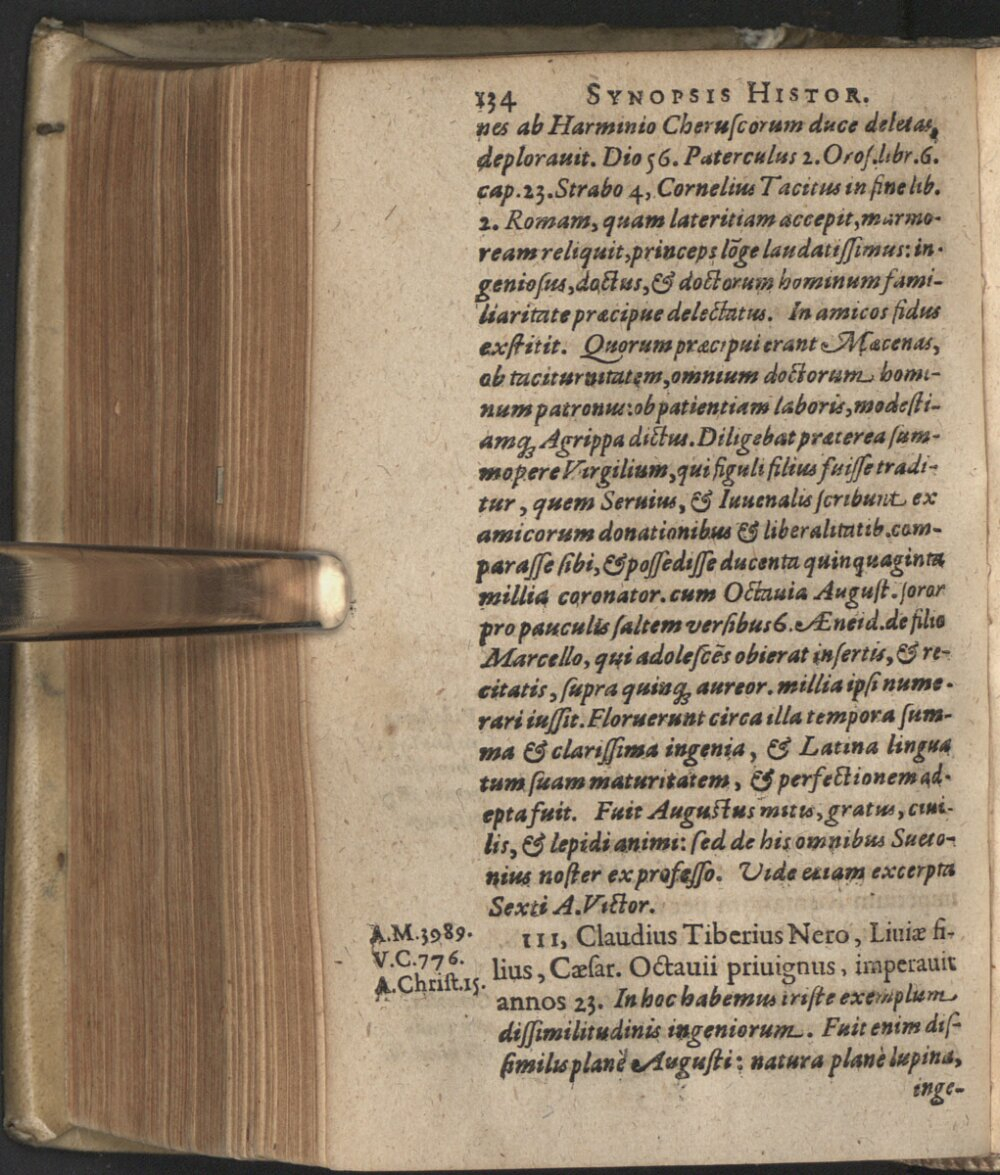 134 SYNOPSIS HISTOR.
nes ab Harminio Cheruſcorum duce deletas,
deplorauit. Dio 56. Paterculus 2. Oroſ. libr. 6.
cap. 23. Strabo 4, Cornelius Tacitus in fine lib.
2. Romam, quam lateritiam accepit, marmo-
ream reliquit, princeps lõge laudatiſſimus: in-
genioſus, doctus, & doctorum hominum fami-
liaritate præcipue delectatus. In amicos fidus
exſtitit. Quorum præcipui erant Mæcenas,
ob taciturnitatem, omnium doctorum homi-
num patronus: ob patientiam laboris, modeſti-
amq; Agrippa dictus. Diligebat præterea ſum-
mopere Virgilium, qui figuli filius fuiſſe tradi-
tur, quem Seruius, & Iuuenalis ſcribunt ex
amicorum donationibus & liberalitatib. com-
paraſſe ſibi, & poſſediſſe ducenta quinquaginta
millia coronator. cum Octauia Auguſt. ſoror
pro pauculis ſaltem verſibus 6. Æneid. de filio
Marcello, qui adoleſcẽs obierat inſertis, & re-
citatis, ſupra quinq; aureor. millia ipſi nume-
rari iuſſit. Floruerunt circa illa tempora ſum-
ma & clariſſima ingenia, & Latina lingua
tum ſuam maturitatem, & perfectionem ad-
epta fuit. Fuit Auguſtus mitis, gratus, ciui-
lis, & lepidi animi: ſed de his omnibus Sueto-
nius noſter ex profeſſo. Vide etiam excerpta
Sexti A. Victor.
A.M. 3989.
V.C. 776.
A. Chriſt. 15.
III, Claudius Tiberius Nero, Liuiæ fi-
lius, Cæſar. Octauii priuignus, imperauit
annos 23. In hoc habemus triſte exemplum
diſſimilitudinis ingeniorum. Fuit enim diſ-
ſimilis planè Auguſti: natura planè lupina,
inge-